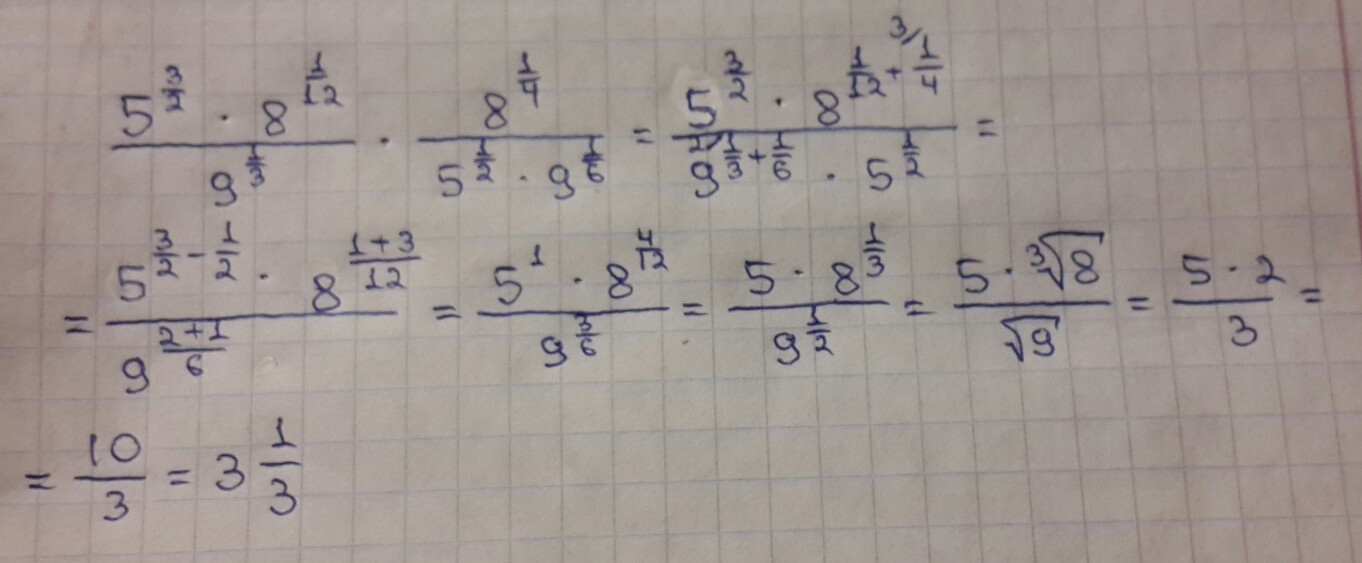 \frac{5^{\frac{3}{2}} \cdot 8^{\frac{1}{12}}}{9^{\frac{1}{3}}} \cdot \frac{8^{\frac{1}{4}}}{5^{\frac{1}{2}} \cdot 9^{\frac{1}{6}}} = \frac{5^{\frac{3}{2}} \cdot 8^{\frac{1}{12} + {}^{3/}\frac{1}{4}}}{9^{{}^{2/}\frac{1}{3} + \frac{1}{6}} \cdot 5^{\frac{1}{2}}} =
= \frac{5^{\frac{3}{2} - \frac{1}{2}} \cdot 8^{\frac{1+3}{12}}}{9^{\frac{2+1}{6}}} = \frac{5^{1} \cdot 8^{\frac{4}{12}}}{9^{\frac{3}{6}}} = \frac{5 \cdot 8^{\frac{1}{3}}}{9^{\frac{1}{2}}} = \frac{5 \cdot \sqrt[3]{8}}{\sqrt{9}} = \frac{5 \cdot 2}{3} =
= \frac{10}{3} = 3\frac{1}{3}